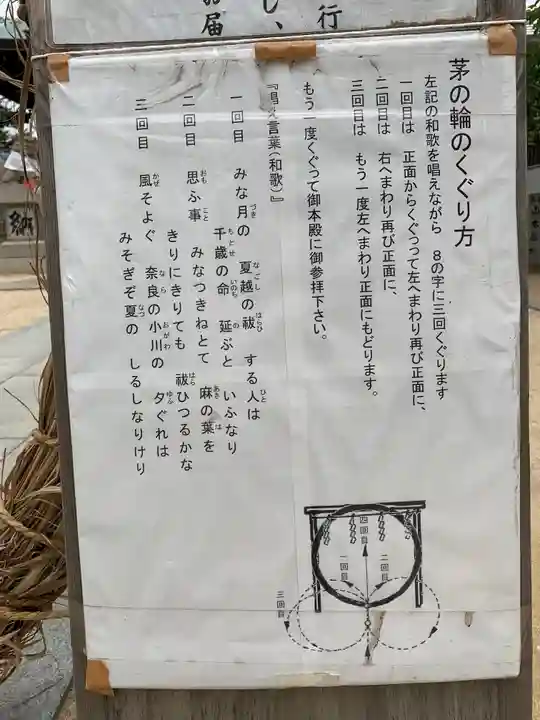 行
し、
お届
茅の輪のくぐり方
左記の和歌を唱えながら 8の字に三回くぐります
一回目は 正面からくぐって左へまわり再び正面に、
二回目は 右へまわり再び正面に、
三回目は もう一度左へまわり正面にもどります。
もう一度くぐって御本殿に御参拝下さい。
『唱え言葉(和歌)』
一回目 みな月の 夏越の祓 する人は
千歳の命 延ぶと いふなり
二回目 思ふ事 みなつきねとて 麻の葉を
きりにきりても 祓ひつるかな
三回目 風そよぐ 奈良の小川の 夕ぐれは
みそぎぞ夏の しるしなりけり
四回目
一回目
二回目
三回目
納